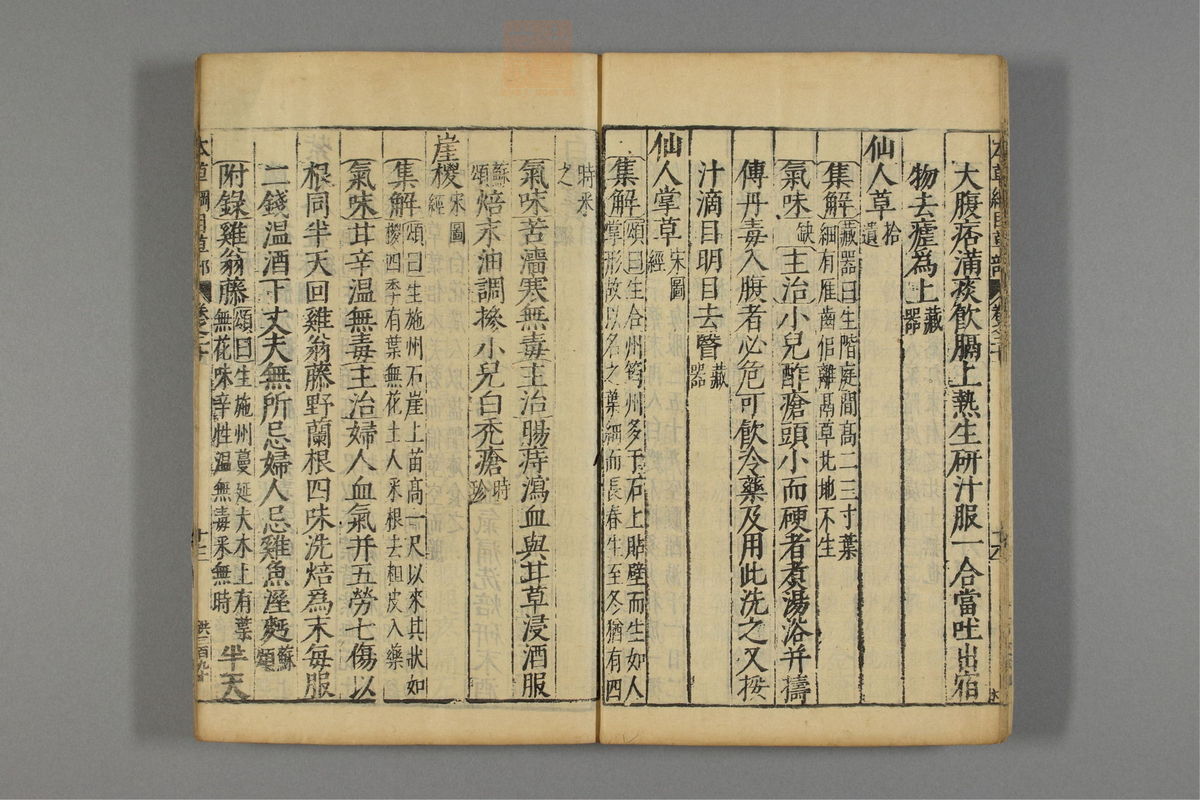 大腹痞滿痰飲膈上熱生研汁服一合當吐出宿
物去瘧為上藏器
仙人草拾遺
集解藏器曰生階庭間高二三寸葉細有雁齒似離鬲草北地不生
氣味缺主治小兒酢瘡頭小而硬者煮湯浴并擣
傅丹毒入腹者必危可飲冷藥及用此洗之又挼
汁滴目明目去瞖藏器
仙人掌草宋圖經
集解頌曰生合州筠州多于石上貼壁而生如人掌形故以名之葉細而長春生至冬猶有四
時采之
氣味苦濇寒無毒主治腸痔瀉血與甘草浸酒服
蘇頌焙末油調摻小兒白禿瘡時珍
崖椶宋圖經
集解頌曰生施州石崖上苗高一尺以來其狀如椶四季有葉無花土人采根去粗皮入藥
氣味甘辛溫無毒主治婦人血氣并五勞七傷以
根同半天回雞翁藤野蘭根四味洗焙為末每服
二錢温酒下丈夫無所忌婦人忌雞魚溼麪蘇頌
附錄雞翁藤頌曰生施州蔓延大木上有葉無花味辛性溫無毒采無時半天
本草綱目草部 卷之二十 十二